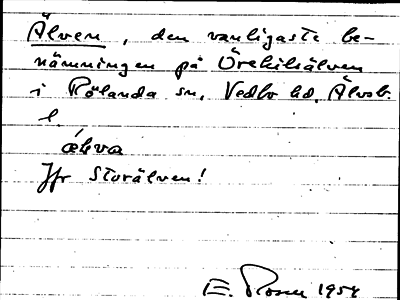 Älven, den vanligaste be-
nämningen på Örekilsälven
i Rölanda sn, Vedbo hd, Älvsb.
l.
älva
Jfr Storälven!
E. Rosen 1954